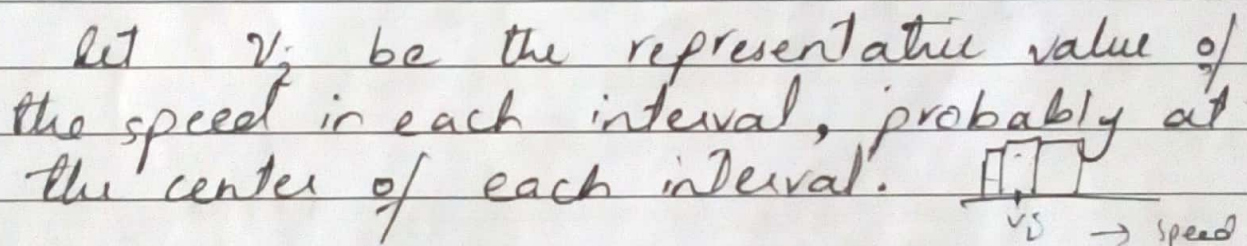 Let vᵢ be the representative value of
the speed in each interval, probably at
the center of each interval.
vᵢ → speed